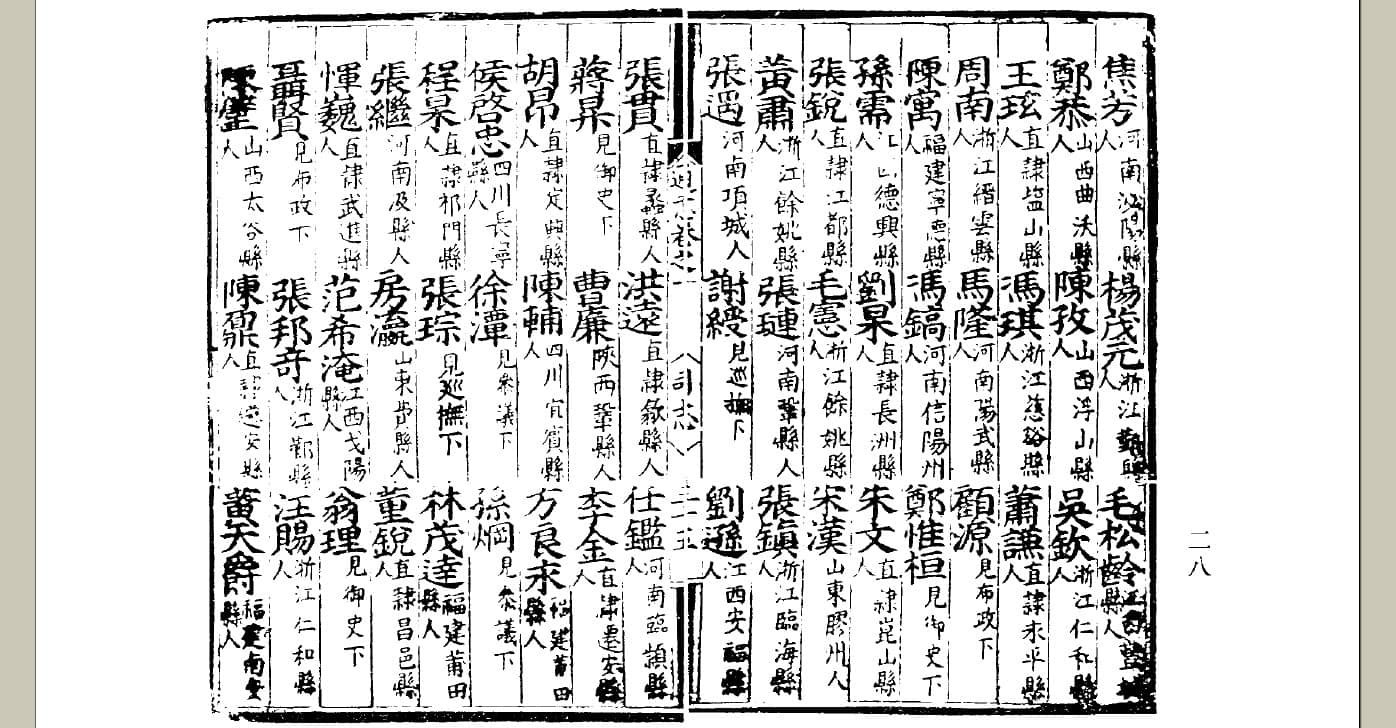 焦芳 河南泌陽縣人 楊茂元 浙江鄞縣人 毛松齡 江西 縣人
鄭恭 山西曲沃縣人 陳孜 山西浮山縣人 吳欽 浙江仁和縣人
王琰 直隸鹽山縣人 馮琪 浙江慈谿縣人 蕭謙 直隸永平縣人
周南 浙江縉雲縣人 馬隆 河南陽武縣人 顧源 見布政下
陳寓 福建寧德縣人 馮鎬 河南信陽州人 鄭惟桓 見御史下
孫需 江西德興縣人 劉杲 直隸長洲縣人 朱文 直隸崑山縣人
張銳 直隸江都縣人 毛憲 浙江餘姚縣人 宋漢 山東膠州人
黃肅 浙江餘姚縣人 張璉 河南鞏縣人 張鎮 浙江臨海縣人
張遇 河南項城人 謝綬 見巡撫下 劉遜 江西安福縣人
八閩通志 卷之 三十五
張貫 直隸蠡縣人 洪遠 直隸歙縣人 任鑑 河南臨潁縣人
蔣昺 見御史下 曹廉 陝西鞏縣人 李金 直隸遷安縣人
胡昂 直隸定興縣人 陳輔 四川宜賓縣人 方良永 福建莆田縣人
侯啓忠 四川長寧縣人 徐潭 見參議下 孫烱 見參議下
程杲 直隸祁門縣人 張琮 見巡撫下 林茂達 福建莆田縣人
張繼 河南及縣人 房瀛 山東費縣人 董銳 直隸昌邑縣人
惲巍 直隸武進縣人 范希淹 江西弋陽縣人 翁理 見御史下
聶賢 見布政下 張邦奇 浙江鄞縣人 汪賜 浙江仁和縣人
陳璧 山西太谷縣人 陳鼐 直隸遵安縣人 黃天爵 福建南安縣人
二八